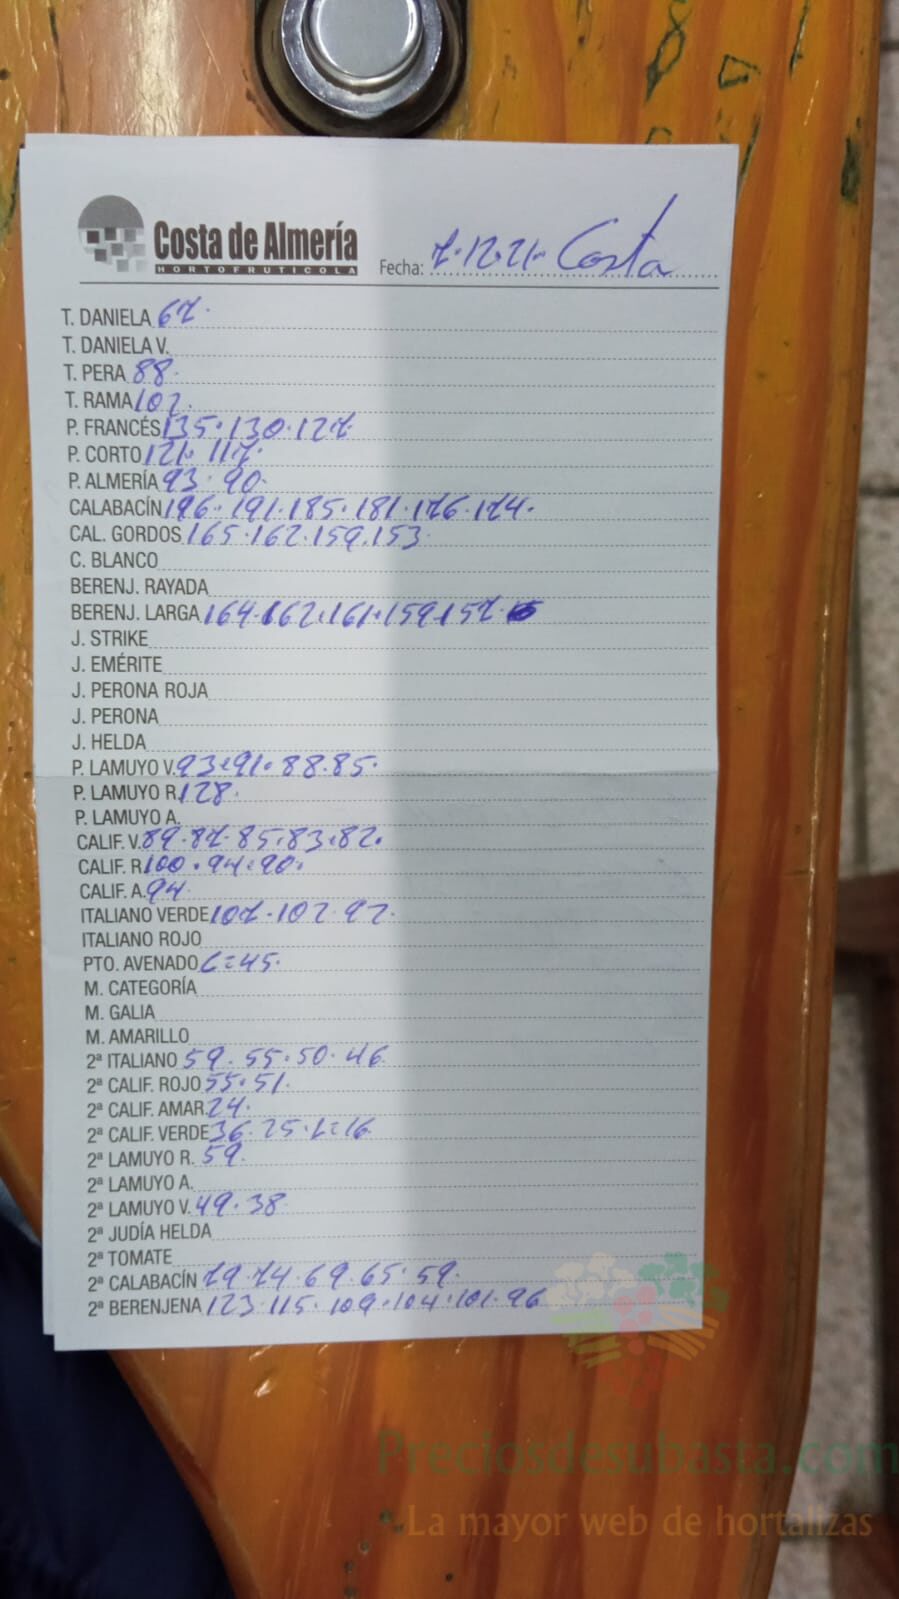 Costa de Almería
HORTOFRUTICOLA
Fecha: 7.12.21. Costa
T. DANIELA 67.
T. DANIELA V.
T. PERA 88.
T. RAMA 102.
P. FRANCÉS 135.130.127
P. CORTO 121.117.
P. ALMERÍA 93.90.
CALABACÍN 196.191.185.181.176.174.
CAL. GORDOS 165.162.159.153.
C. BLANCO
BERENJ. RAYADA
BERENJ. LARGA 164.162.161.159.157.
J. STRIKE
J. EMÉRITE
J. PERONA ROJA
J. PERONA
J. HELDA
P. LAMUYO V. 93.91.88.85.
P. LAMUYO R. 128.
P. LAMUYO A.
CALIF. V. 89.87.85.83.82.
CALIF. R. 100.94.90.
CALIF. A. 94.
ITALIANO VERDE 107.102.92.
ITALIANO ROJO
PTO. AVENADO C=45.
M. CATEGORÍA
M. GALIA
M. AMARILLO
2ª ITALIANO 59.55.50.46
2ª CALIF. ROJO 55.51.
2ª CALIF. AMAR. 24.
2ª CALIF. VERDE 36.25.L=16
2ª LAMUYO R. 59.
2ª LAMUYO A.
2ª LAMUYO V. 49.38.
2ª JUDÍA HELDA
2ª TOMATE
2ª CALABACÍN 79.74.69.65.59.
2ª BERENJENA 123.115.109.104.101.96
Preciosdesubasta.com
La mayor web de hortalizas